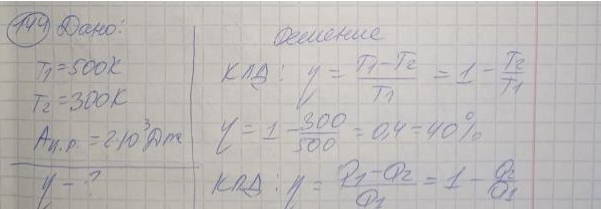 144 Дано:
T1=500K
T2=300K
Aц.р.=2·10³Дж
η-?
Решение
КПД: η = (T1-T2)/T1 = 1 - T2/T1
η = 1 - 300/500 = 0,4 = 40%
КПД: η = (Q1-Q2)/Q1 = 1 - Q2/Q1